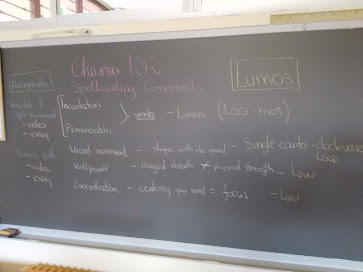 Charms 101:
Spellcasting Components
Lumos
Assignments
How did I
get my wand
- video
- essay
Lumos spell
- video
- essay
Incantation
Pronunciation
words - Lumos (Loo-mos)
Wand movement - shapes with the wand - Single counter-clockwise
Loop
Willpower - magical strength ≠ physical strength - Low
Concentration - centering your mind = focus - Low